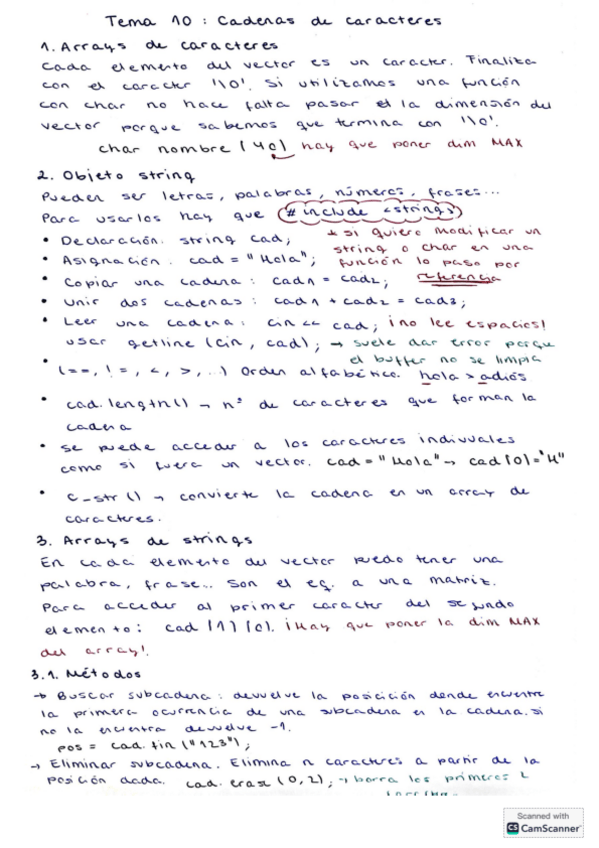 Tema 10 : Cadenas de caracteres
1. Arrays de caracteres
Cada elemento del vector es un caracter. Finaliza
con el caracter '\0'. Si utilizamos una función
con char no hace falta pasar el la dimensión del
vector porque sabemos que termina con '\0'.
char nombre [40] hay que poner dim MAX
2. Objeto string
Pueden ser letras, palabras, números, frases...
Para usarlos hay que (#include <string>)
• Declaración. string cad;
* si quiero modificar un
string o char en una
función lo paso por
referencia
• Asignación. cad = "Hola";
• Copiar una cadena: cad1 = cad2;
• Unir dos cadenas: cad1 + cad2 = cad3;
• Leer una cadena: cin << cad; ¡no lee espacios!
usar getline (cin, cad); → suele dar error porque
el buffer no se limpia
• (==, !=, <, >, ...) Orden alfabético. hola > adiós
• cad.length() → nº de caracteres que forman la
cadena
• se puede acceder a los caracteres indivuales
como si fuera un vector. cad = "Hola" → cad[0] = "H"
• c_str() → convierte la cadena en un array de
caracteres.
3. Arrays de strings
En cada elemento del vector puedo tener una
palabra, frase... Son el eq. a una matriz.
Para acceder al primer caracter del segundo
elemento: cad [1][0]. ¡Hay que poner la dim MAX
del array!.
3.1. Métodos
→ Buscar subcadena: devuelve la posición donde encuentre
la primera ocurrencia de una subcadena en la cadena. Si
no la encuentra devuelve -1.
pos = cad.fin("123");
→ Eliminar subcadena. Elimina n caracteres a partir de la
posición dada. cad.erase (0,2); → borra los primeros 2
Scanned with
CS CamScanner